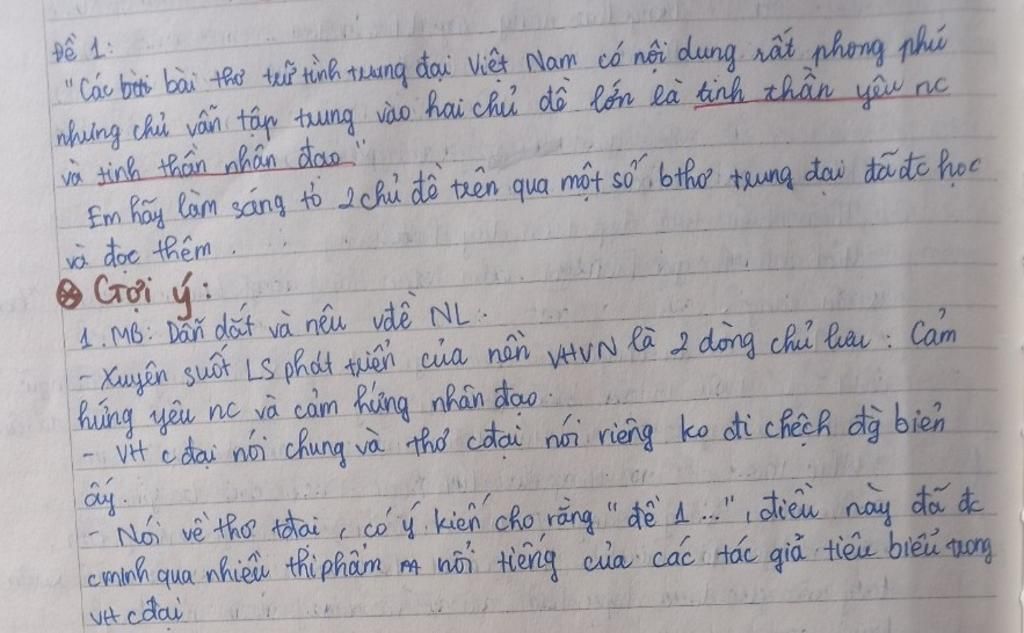 Đề 1:
"Các bài thơ trữ tình trung đại Việt Nam có nội dung rất phong phú
nhưng chủ vẫn tập trung vào hai chủ đề lớn là tinh thần yêu nc
và tinh thần nhân đạo"
Em hãy làm sáng tỏ 2 chủ đề trên qua một số bthơ trung đại đã đc học
và đọc thêm.
Gợi ý:
1. MB: Dẫn dắt và nêu vđề NL.
- Xuyên suốt LS phát triển của nền VHVN là 2 dòng chủ lưu: Cảm
hứng yêu nc và cảm hứng nhân đạo.
- VH cđại nói chung và thơ cđại nói riêng ko đi chệch đg biên
ấy.
- Nói về thơ tđại, có ý kiến cho rằng "đề 1...", điều này đã đc
cminh qua nhiều thi phẩm nổi tiếng của các tác giả tiêu biểu trong
VH cđại